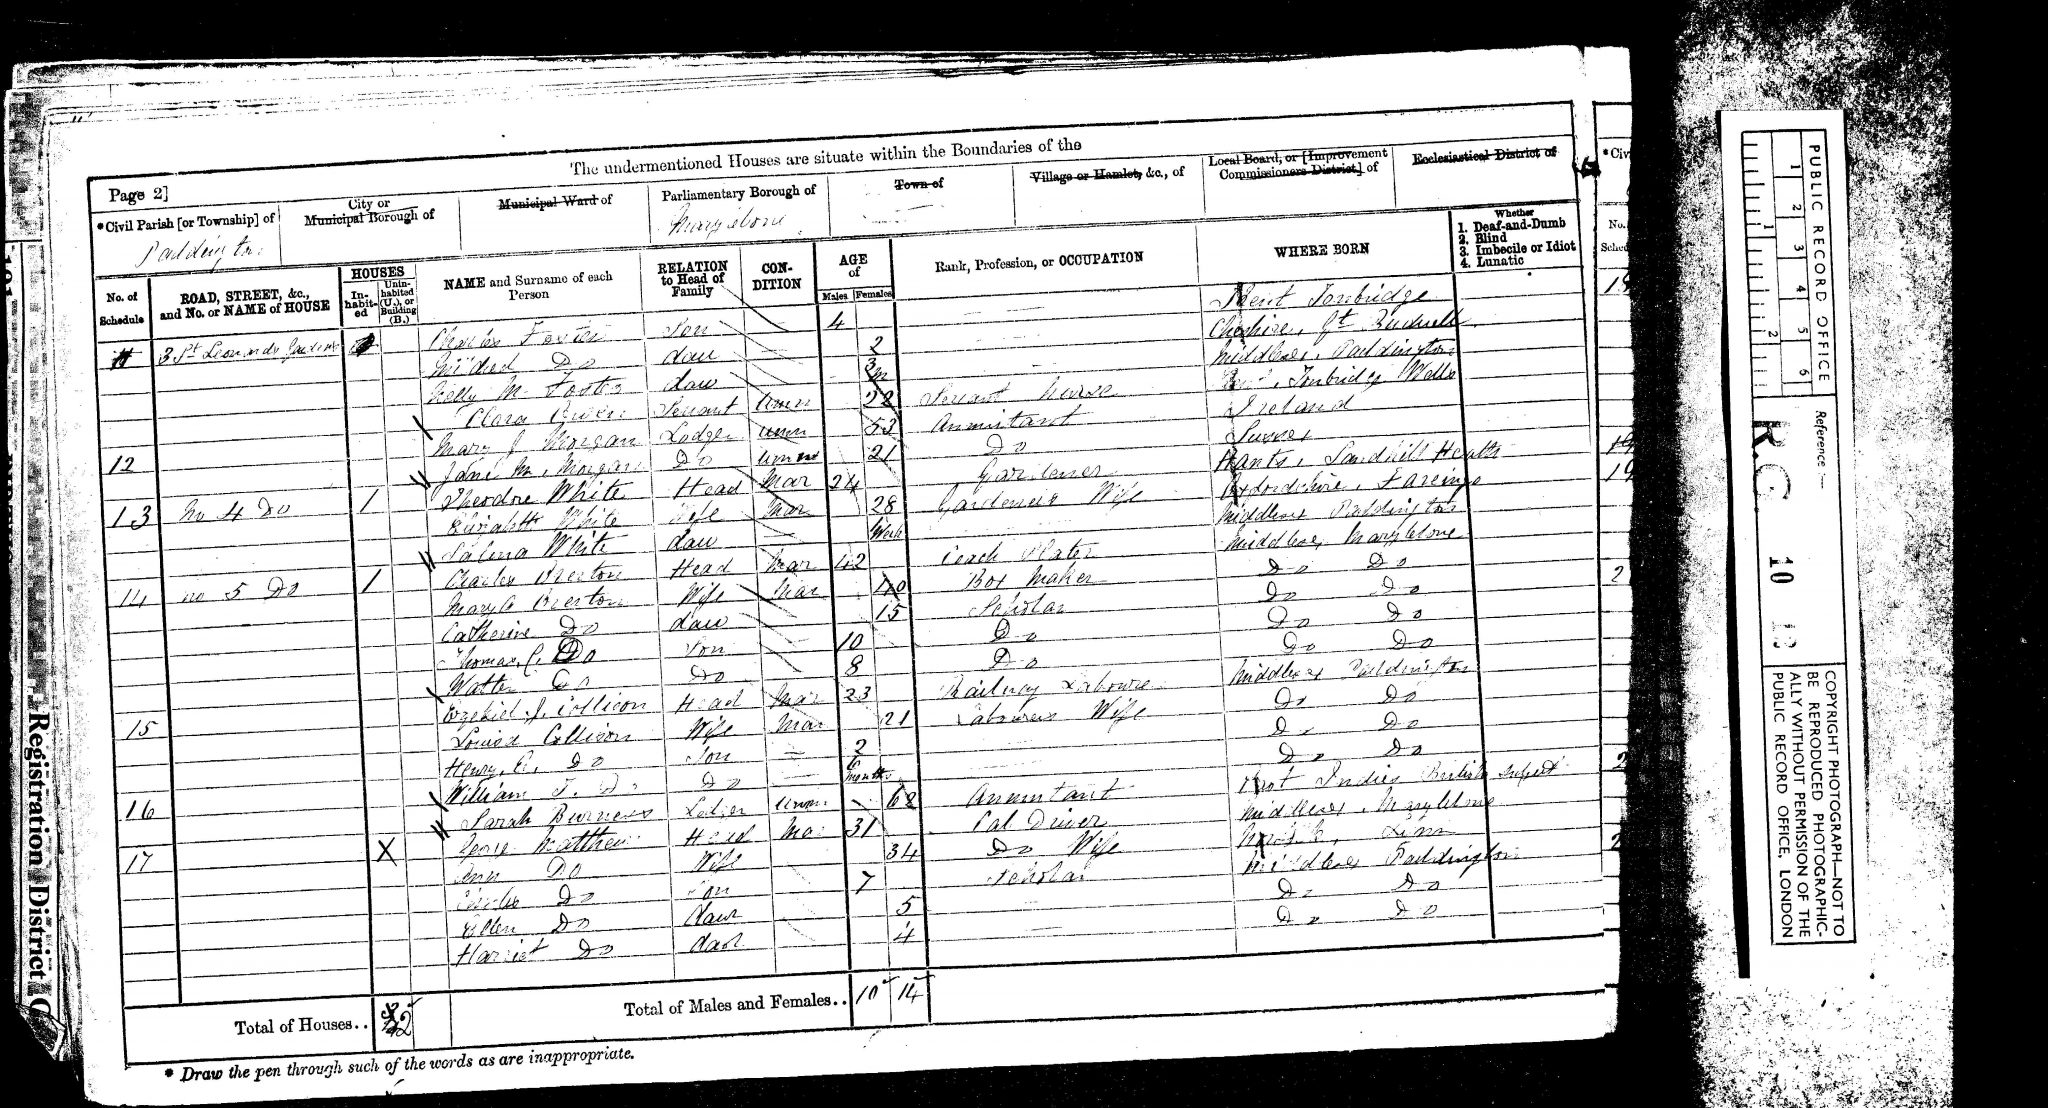 The undermentioned Houses are situate within the Boundaries of the
Page 2]
*Civil Parish [or Township] of
Paddington
City or
Municipal Borough of
Municipal Ward of
Parliamentary Borough of
Marylebone
Town of
Village or Hamlet, &c., of
Local Board, or [Improvement
Commissioners District] of
Ecclesiastical District of
No. of
Schedule
ROAD, STREET, &c.,
and No. or NAME of HOUSE
HOUSES
In-
habit-
ed
Unin-
habited
(U.), or
Building
(B.)
NAME and Surname of each
Person
RELATION
to Head of
Family
CON-
DITION
AGE
of
Males Females
Rank, Profession, or OCCUPATION
WHERE BORN
Whether
1. Deaf-and-Dumb
2. Blind
3. Imbecile or Idiot
4. Lunatic
3 St Leonards Gardens Charles Son 4 Kent Tonbridge
Mildred Do daw 2 Cheshire, Gt
Nelly M. Foster daw 3 m Middlesex, Paddington
Clara Servant Unm 28 Servant Nurse Tonbridge Wells
12 Mary J Morgan Lodger Unm 53 Annuitant Ireland
Jane M. Morgan Do Unm 21 Do Sussex
13 No 4 Do 1 Theodore White Head Mar 24 Gardener Hants, Heath
Elizabeth White Wife Mar 28 Gardeners Wife Oxfordshire,
White daw Week Middlesex Paddington
14 No 5 Do 1 Charles Head Mar 42 Coach Plater Middlesex Marylebone
Mary A Wife Mar 40 Box Maker Do Do
Catherine Do daw 15 Scholar Do Do
Thomas C. Do Son 10 Do Do Do
Walter Do Do 8 Do Do Do
15 Ezekiel J. Collison Head Mar 23 Railway Labourer Middlesex Paddington
Louisa Collison Wife Mar 21 Labourers Wife Do Do
Henry E. Do Son 2 Do Do
William T. Do Do 6 months Do Do
16 Sarah Burness Lodger Unm 68 Annuitant East Indies British Subject
17 X George Matthew Head Mar 31 Cab Driver Middlesex, Marylebone
Ann Do Wife 34 Do Wife Norfolk, Lynn
Charles Do Son 7 Scholar Middlesex Paddington
Ellen Do daur 5 Do Do
Harriet Do daur 4 Do Do
Total of Houses.. 2
Total of Males and Females.. 10 14
* Draw the pen through such of the words as are inappropriate.
Registration District
*Civ
No.
Sched
19
19
2
2
2
PUBLIC RECORD OFFICE
1 2 3 4 5 6
1 2
Reference:—
R.G. 10
COPYRIGHT PHOTOGRAPH—NOT TO
BE REPRODUCED PHOTOGRAPHIC-
ALLY WITHOUT PERMISSION OF THE
PUBLIC RECORD OFFICE, LONDON